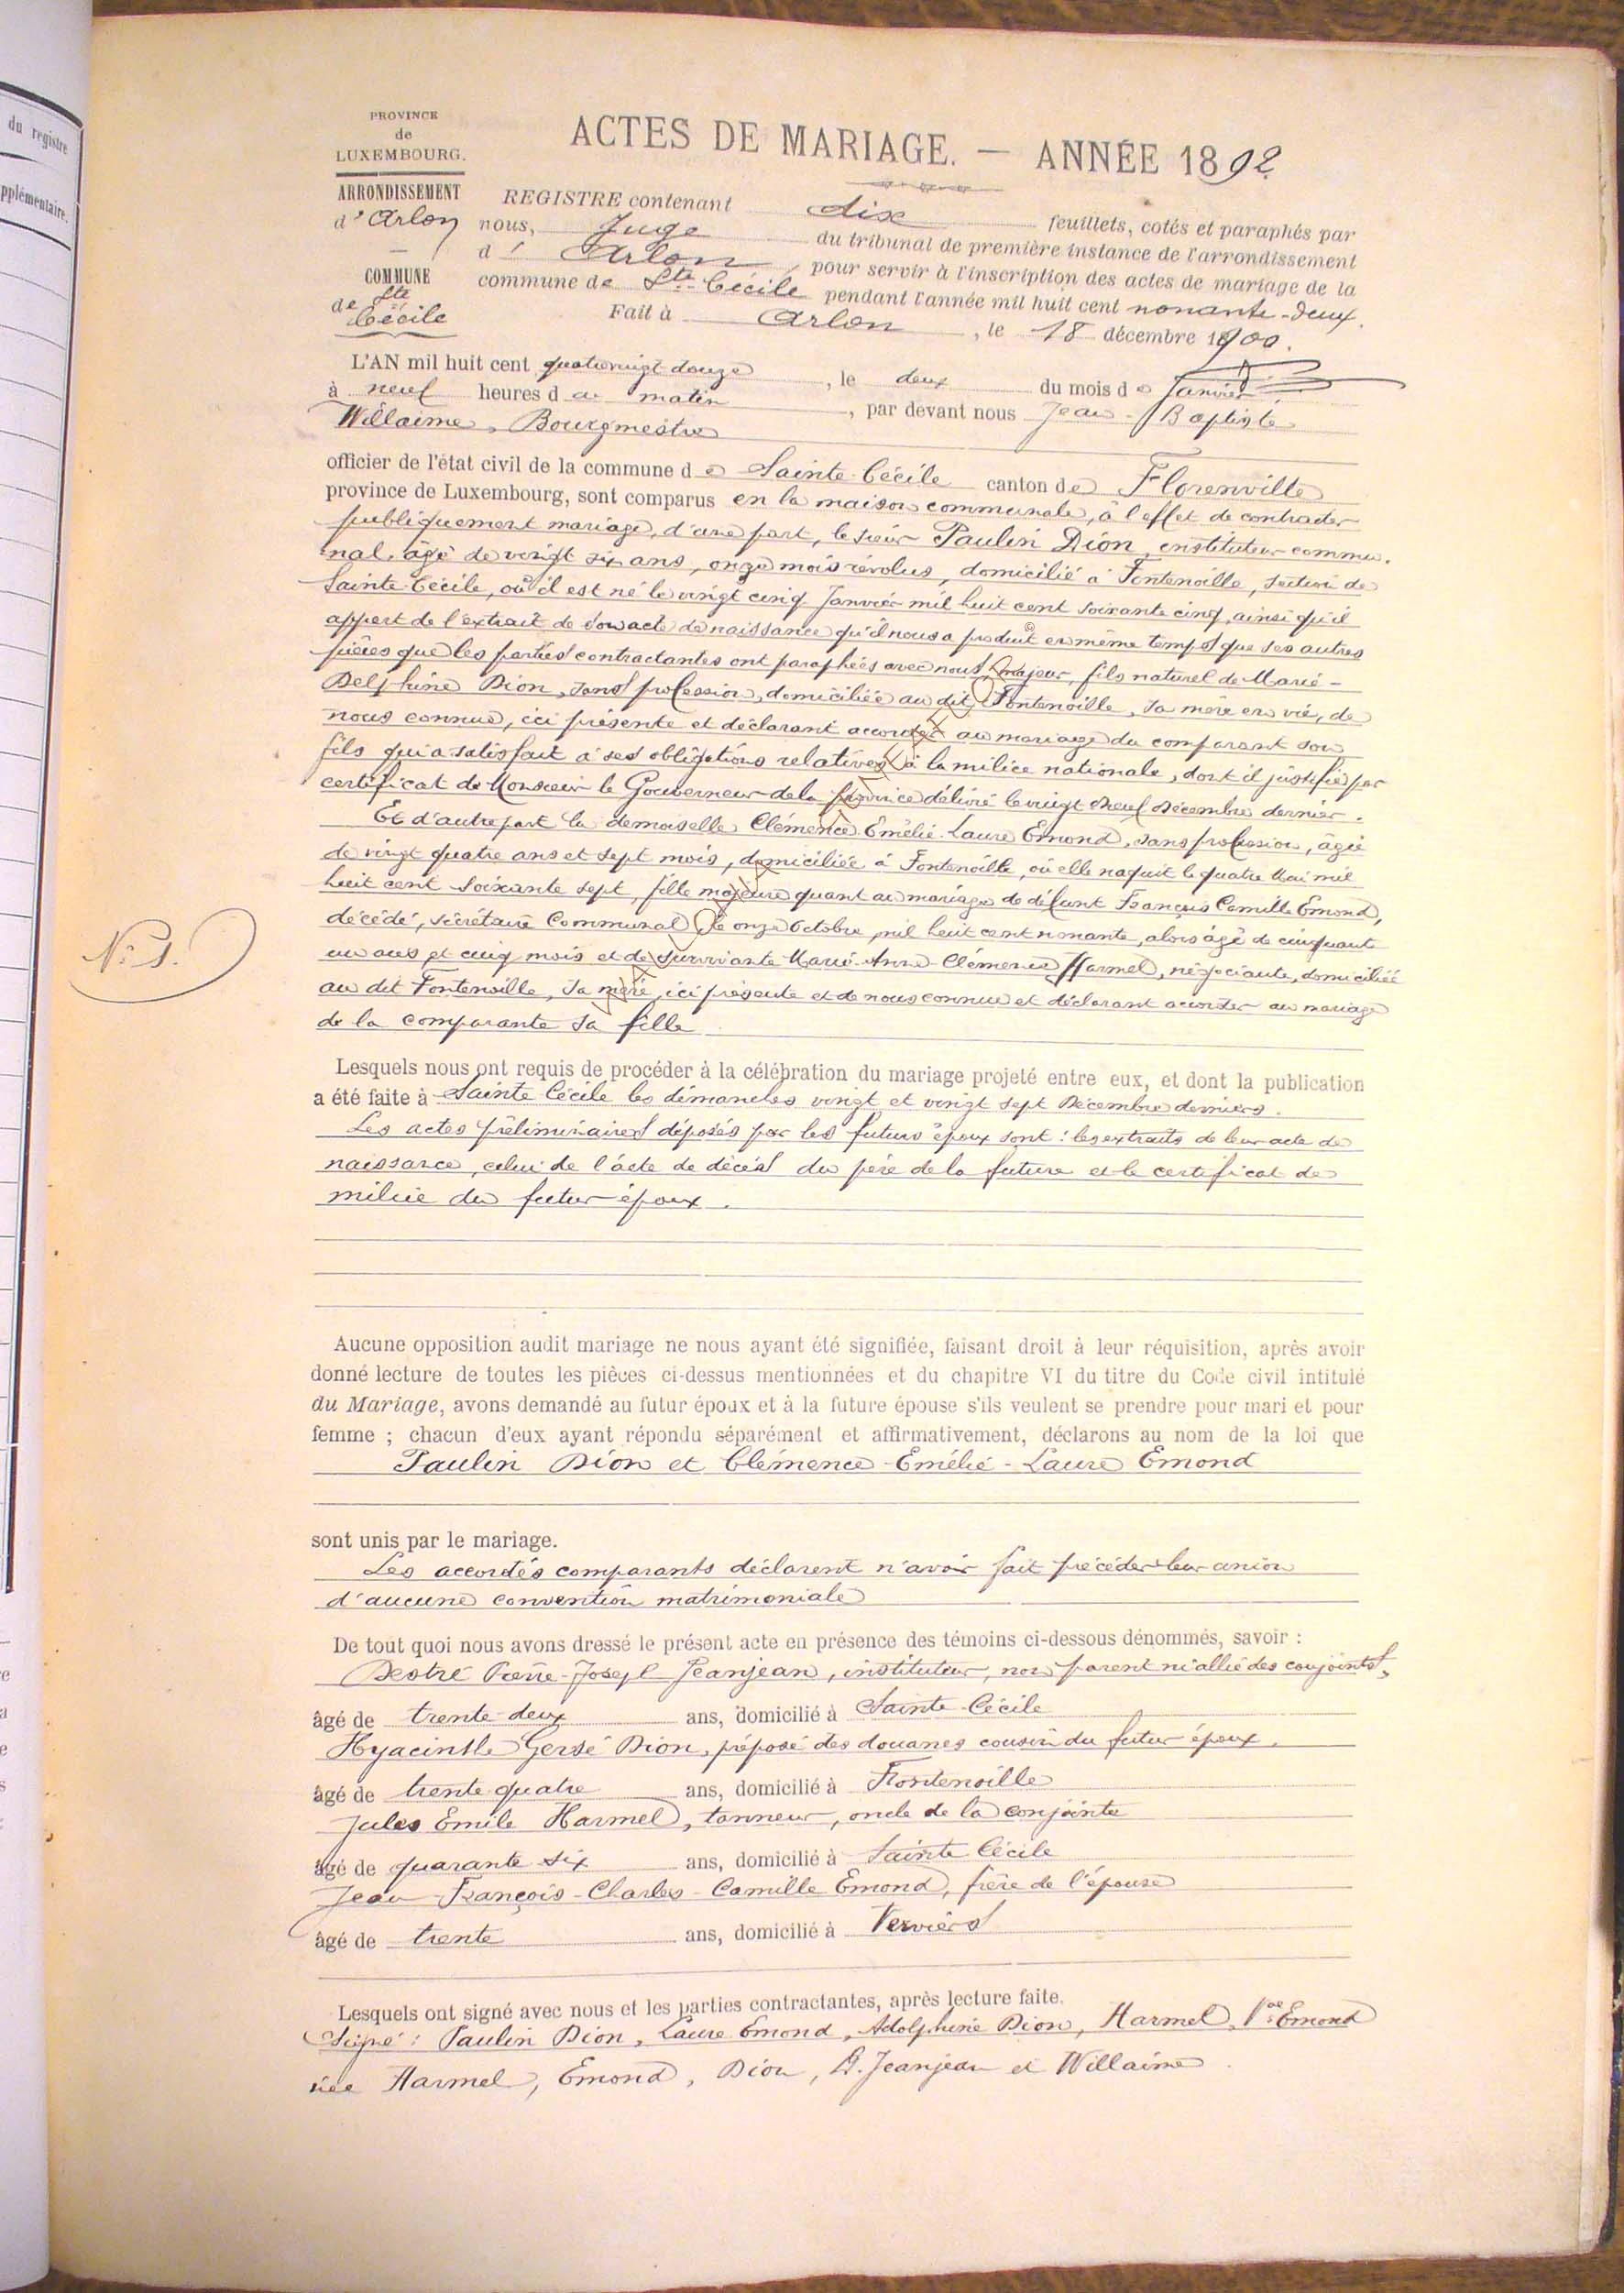 du registre
pplémentaire.
PROVINCE
de
LUXEMBOURG.
ARRONDISSEMENT
d'Arlon
COMMUNE
de Ste
Cécile
ACTES DE MARIAGE. — ANNÉE 1892
REGISTRE contenant dix feuillets, cotés et paraphés par
nous, Juge du tribunal de première instance de l'arrondissement
d' Arlon, pour servir à l'inscription des actes de mariage de la
commune de Ste Cécile pendant l'année mil huit cent nonante-deux.
Fait à Arlon, le 18 décembre
L'AN mil huit cent quatrevingt douze, le deux du mois de Janvier
à neuf heures du matin, par devant nous Jean-Baptiste
Willaime, Bourgmestre
officier de l'état civil de la commune de Sainte-Cécile canton de Florenville
province de Luxembourg, sont comparus en la maison communale, à l'effet de contracter
publiquement mariage, d'une part, le sieur Paulin Dion, instituteur commu-
nal, âgé de vingt six ans, onze mois révolus, domicilié à Fontenoille, section de
Sainte-Cécile, où il est né le vingt cinq Janvier mil huit cent soixante cinq, ainsi qu'il
appert de l'extrait de son acte de naissance qu'il nous a produit en même temps que ses autres
pièces que les parties contractantes ont paraphées avec nous, majeur, fils naturel de Marie-
Delphine Dion, sans profession, domiciliée au dit Fontenoille, sa mère en vie, de
nous connue, ici présente et déclarant accorder au mariage du comparant son
fils qui a satisfait à ses obligations relatives à la milice nationale, dont il justifie par
certificat de Monsieur le Gouverneur de la province délivré le vingt neuf Décembre dernier.
Et d'autre part la demoiselle Clémence-Emélie-Laure Emond, sans profession, âgée
de vingt quatre ans et sept mois, domiciliée à Fontenoille, où elle naquit le quatre Mai mil
huit cent soixante sept, fille majeure quant au mariage de défunt François Camille Emond,
décédé, secrétaire Communal, le onze Octobre mil huit cent nonante, alors âgé de cinquante
un ans et cinq mois et de survivante Marie-Anne-Clémence Harmel, négociante, domiciliée
au dit Fontenoille, sa mère, ici présente et de nous connue et déclarant accorder au mariage
de la comparante sa fille
N° 1.
Lesquels nous ont requis de procéder à la célébration du mariage projeté entre eux, et dont la publication
a été faite à Sainte-Cécile les dimanches vingt et vingt sept Décembre derniers.
Les actes préliminaires déposés par les futurs époux sont : les extraits de leur acte de
naissance, celui de l'acte de décès du père de la future et le certificat de
milice du futur époux.
Aucune opposition audit mariage ne nous ayant été signifiée, faisant droit à leur réquisition, après avoir
donné lecture de toutes les pièces ci-dessus mentionnées et du chapitre VI du titre du Code civil intitulé
du Mariage, avons demandé au futur époux et à la future épouse s'ils veulent se prendre pour mari et pour
femme ; chacun d'eux ayant répondu séparément et affirmativement, déclarons au nom de la loi que
Paulin Dion et Clémence-Emélie-Laure Emond
sont unis par le mariage.
Les accordés comparants déclarent n'avoir fait précéder leur union
d'aucune convention matrimoniale
De tout quoi nous avons dressé le présent acte en présence des témoins ci-dessous dénommés, savoir :
Pierre-Joseph Jeanjean, instituteur, non parent ni allié des conjoints,
âgé de trente-deux ans, domicilié à Sainte-Cécile
Hyacinthe Dion, préposé des douanes cousin du futur époux,
âgé de trente-quatre ans, domicilié à Fontenoille
Jules Emile Harmel, tanneur, oncle de la conjointe
âgé de quarante six ans, domicilié à Sainte Cécile
Jean-François-Charles-Camille Emond, frère de l'épouse
âgé de trente ans, domicilié à Verviers
Lesquels ont signé avec nous et les parties contractantes, après lecture faite.
Signé : Paulin Dion, Laure Emond, Adolphine Dion, Harmel, Vve Emond
née Harmel, Emond, Dion, D. Jeanjean et Willaime